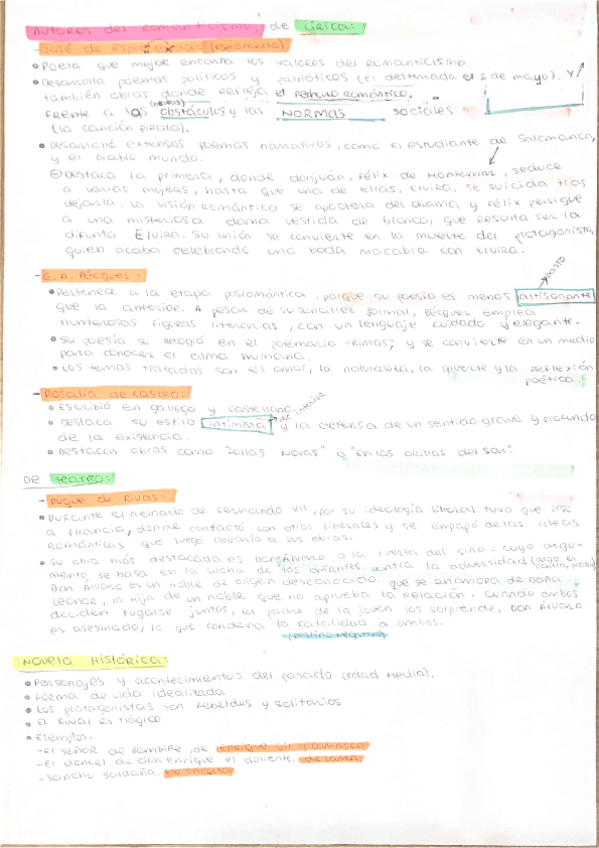 AUTORES del ROMANTICISMO, de LÍRICA:
- José de Espronceda: (espronceda)
• Poeta que mejor encarna los valores del romanticismo.
• Desarrolla poemas políticos y patrióticos (el desterrado, el 2 de mayo). Y
también obras donde refleja el rechulo romántico.
Frente a los obstáculos y las NORMAS sociales
(la canción pirata).
• Desarrolló extensos poemas narrativos, como el estudiante de Salamanca,
y el diablo mundo.
Destaca la primera, donde donjuán, Félix de Montemar, seduce
a varias mujeres, hasta que una de ellas, Elvira, se suicida tras
dejarla. La visión romántica se apodera del drama, y Félix persigue
a una misteriosa dama vestida de blanco, que resulta ser la
difunta Elvira. Su unión se convierte en la muerte del protagonista,
quien acaba celebrando una boda macabra con Elvira.
- G. A. Bécquer:
• Pertenece a la etapa posromántica, porque su poesía es menos altisonante
que la anterior. A pesar de su sencillez formal, Bécquer emplea
numerosas figuras literarias, con un lenguaje cuidado y elegante.
• Su poesía se recogió en el poemario "Rimas", y se convierte en un medio
para conocer el alma humana.
• Los temas tratados son el amor, la naturaleza, la muerte y la reflexión
poética.
- Rosalía de Castro:
• Escribió en gallego y castellano.
• Destaca su estilo intimista y la defensa de un sentido grave y profundo
de la existencia.
• Destacan obras como "Follas Novas" o "En las orillas del Sar".
DE teatro:
- Duque de Rivas:
• Durante el reinado de Fernando VII, por su ideología liberal tuvo que irse
a Francia, donde contactó con otros liberales y se empapó de las ideas
Románticas que luego llevaría a sus obras.
• Su obra más destacada es Don Álvaro o la fuerza del sino - cuyo argu-
mento se basa en la lucha de los amantes contra la adversidad (algo en
Don Álvaro es un noble de origen desconocido que se enamora de Doña
Leonor, la hija de un noble que no aprueba la relación. Cuando ambos
deciden fugarse juntos, el padre de la joven los sorprende, Don Álvaro
es asesinado, lo que condena la fatalidad a ambos.
NOVELA HISTÓRICA:
• Personajes y acontecimientos del pasado (Edad Media).
• Forma de vida idealizada
• Los protagonistas son Rebeldes y solitarios
• El final es trágico
• Ejemplos.
- El señor de Bembibre, de Enrique Gil y Carrasco
- El doncel de don Enrique el doliente, de Larra
- Sancho Saldaña, Espronceda